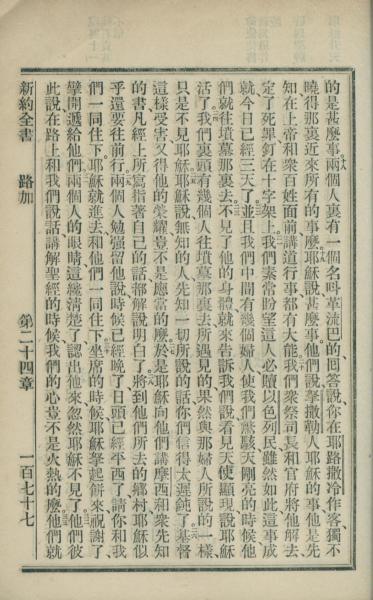 的是甚麽事兩個人裏有一個名呌革流巴的囘答說你在耶路撒冷作客獨不
曉得那裏近來所有的事麽耶穌說甚麽事他們說拏撒勒人耶穌的事他是先
知在上帝和衆百姓面前講道行事都有大能我們衆祭司長和官府將他解去
定了死罪釘在十字架上我們素常盼望這人必贖以色列民雖然如此這事成
就今日已經三天了並且我們中間有幾個婦人使我們驚駭天剛亮的時候他
們就往墳墓那裏去不見了他的身體就來告訴我們說看見天使顯現說耶穌
活了我們裏頭有幾個人往墳墓那裏去所遇見的果然與那婦人所說的一樣
只是不見耶穌耶穌說無知的人先知一切所說的話你們信得太遲鈍了基督
這樣受害又得他的榮耀豈不是應當的麽於是耶穌向他們講摩西和衆先知
的書凡經上所寫指著自己的話都解說明白了將到他們所去的鄉村耶穌似
乎還要往前行兩個人勉强留他說時候已經晚了日頭已經平西了請你和我
們一同住下耶穌就進去和他們一同住下坐席的時候耶穌拏起餅來祝謝了
擘開遞給他們兩個人的眼睛這纔淸楚了認出他來忽然耶穌不見了他們彼
此說在路上和我們說話講解聖經的時候我們的心豈不是火熱的麽他們就
新約全書 路加 第二十四章 一百七十七